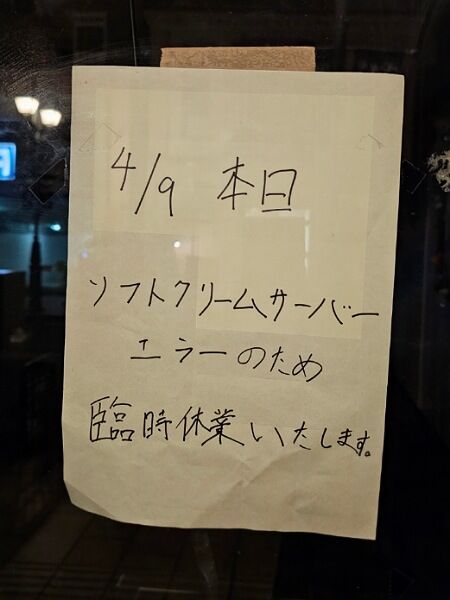 4/9 本日
ソフトクリームサーバー
エラーのため
臨時休業いたします。